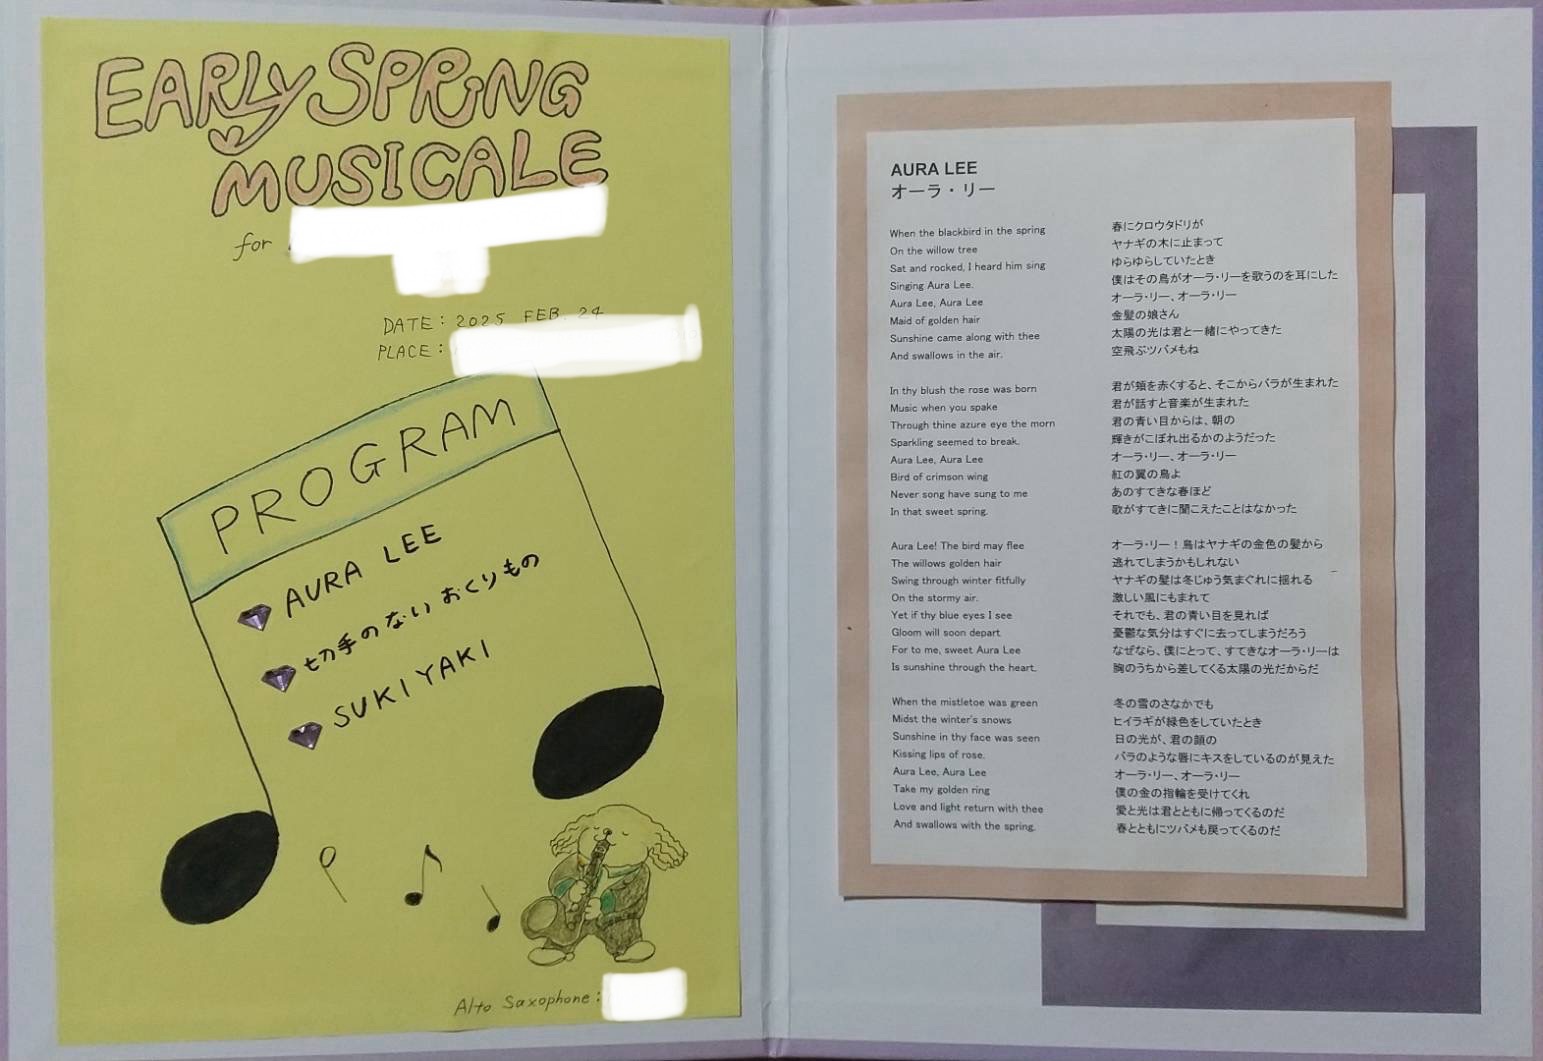 EARLY SPRING
MUSICALE
for
DATE: 2025 FEB. 24
PLACE:
PROGRAM
AURA LEE
切手のないおくりもの
SUKIYAKI
Alto Saxophone:
AURA LEE
オーラ・リー
When the blackbird in the spring
On the willow tree
Sat and rocked, I heard him sing
Singing Aura Lee.
Aura Lee, Aura Lee
Maid of golden hair
Sunshine came along with thee
And swallows in the air.
In thy blush the rose was born
Music when you spake
Through thine azure eye the morn
Sparkling seemed to break.
Aura Lee, Aura Lee
Bird of crimson wing
Never song have sung to me
In that sweet spring.
Aura Lee! The bird may flee
The willows golden hair
Swing through winter fitfully
On the stormy air.
Yet if thy blue eyes I see
Gloom will soon depart
For to me, sweet Aura Lee
Is sunshine through the heart.
When the mistletoe was green
Midst the winter's snows
Sunshine in thy face was seen
Kissing lips of rose.
Aura Lee, Aura Lee
Take my golden ring
Love and light return with thee
And swallows with the spring.
春にクロウタドリが
ヤナギの木に止まって
ゆらゆらしていたとき
僕はその鳥がオーラ・リーを歌うのを耳にした
オーラ・リー、オーラ・リー
金髪の娘さん
太陽の光は君と一緒にやってきた
空飛ぶツバメもね
君が頬を赤くすると、そこからバラが生まれた
君が話すと音楽が生まれた
君の青い目からは、朝の
輝きがこぼれ出るかのようだった
オーラ・リー、オーラ・リー
紅の翼の鳥よ
あのすてきな春ほど
歌がすてきに聞こえたことはなかった
オーラ・リー！鳥はヤナギの金色の髪から
逃れてしまうかもしれない
ヤナギの髪は冬じゅう気まぐれに揺れる
激しい風にもまれて
それでも、君の青い目を見れば
憂鬱な気分はすぐに去ってしまうだろう
なぜなら、僕にとって、すてきなオーラ・リーは
胸のうちから差してくる太陽の光だからだ
冬の雪のさなかでも
ヒイラギが緑色をしていたとき
日の光が、君の顔の
バラのような唇にキスをしているのが見えた
オーラ・リー、オーラ・リー
僕の金の指輪を受けてくれ
愛と光は君とともに帰ってくるのだ
春とともにツバメも戻ってくるのだ